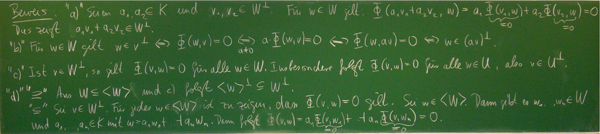 Beweis "a)" Seien a₁, a₂ ∈ K und v₁, v₂ ∈ W^⊥. Für w ∈ W gilt: Φ(a₁v₁+a₂v₂, w) = a₁Φ(v₁,w) + a₂Φ(v₂,w) = 0
=0 =0
Das zeigt a₁v₁+a₂v₂ ∈ W^⊥.
"b)" Für w ∈ W gilt w ∈ v^⊥ ⇔ Φ(w,v)=0 ⇔ aΦ(w,v)=0 ⇔ Φ(w,av)=0 ⇔ w ∈ (av)^⊥.
a≠0
"c)" Ist v ∈ W^⊥, so gilt Φ(v,w)=0 für alle w ∈ W. Insbesondere folgt Φ(v,w)=0 für alle w ∈ U, also v ∈ U^⊥.
"d)" "⊇" Aus W ⊆ <W> und c) folgt <W>^⊥ ⊆ W^⊥.
"⊆" Sei v ∈ W^⊥. Für jedes w ∈ <W> ist zu zeigen, dass Φ(v,w)=0 gilt. Sei w ∈ <W>. Dann gibt es w₁,…,wₙ ∈ W
und a₁,…,aₙ ∈ K mit w = a₁w₁+…+aₙwₙ. Dann folgt Φ(v,w) = a₁Φ(v,w₁)+…+aₙΦ(v,wₙ) = 0.
=0 =0